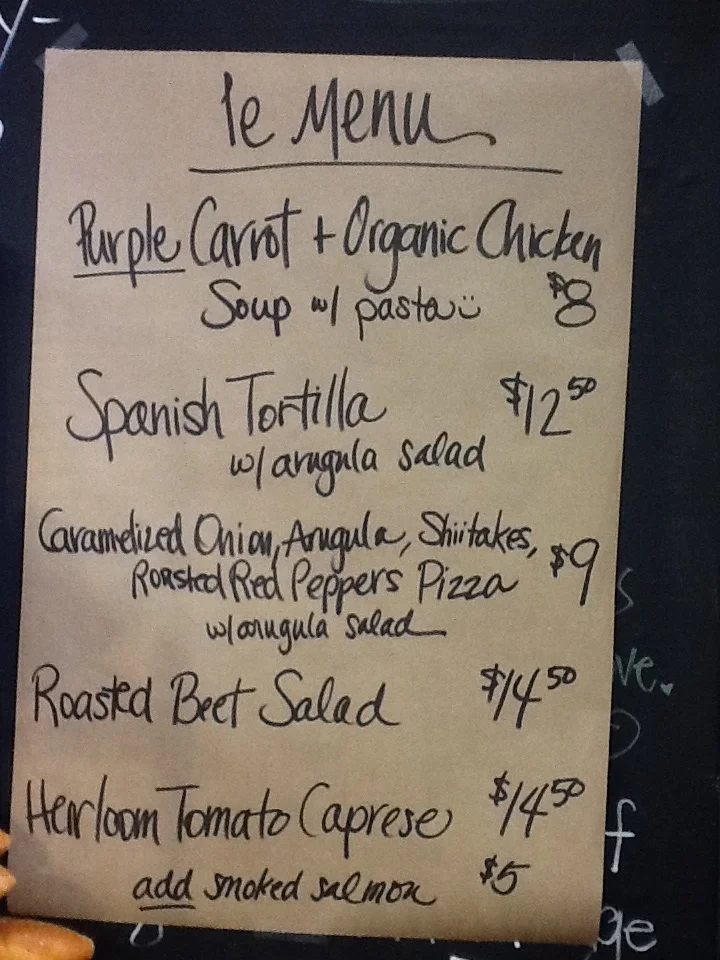 le Menu
Purple Carrot + Organic Chicken
Soup w/ pasta $8
Spanish Tortilla $12 50
w/ arugula salad
Caramelized Onion, Arugula, Shiitakes,
Roasted Red Peppers Pizza $9
w/ arugula salad
Roasted Beet Salad $14 50
Heirloom Tomato Caprese $14 50
add smoked salmon $5